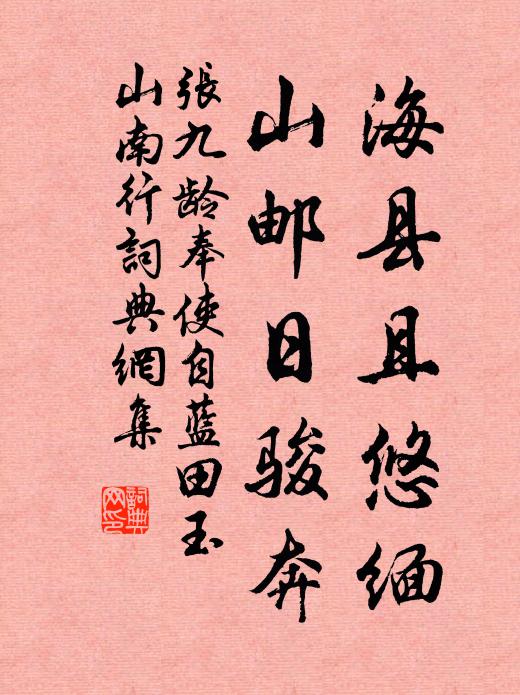 海县且悠缅
山邮日骏奔
張九龄奉使自蓝田玉
山南行詞典網集
詞典
网印